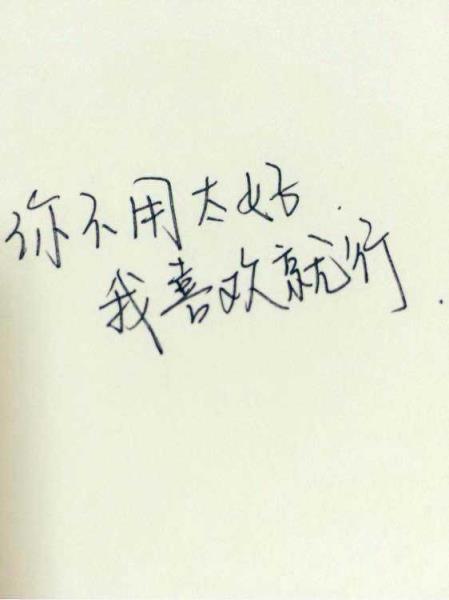 你不用太好.
我喜欢就行.